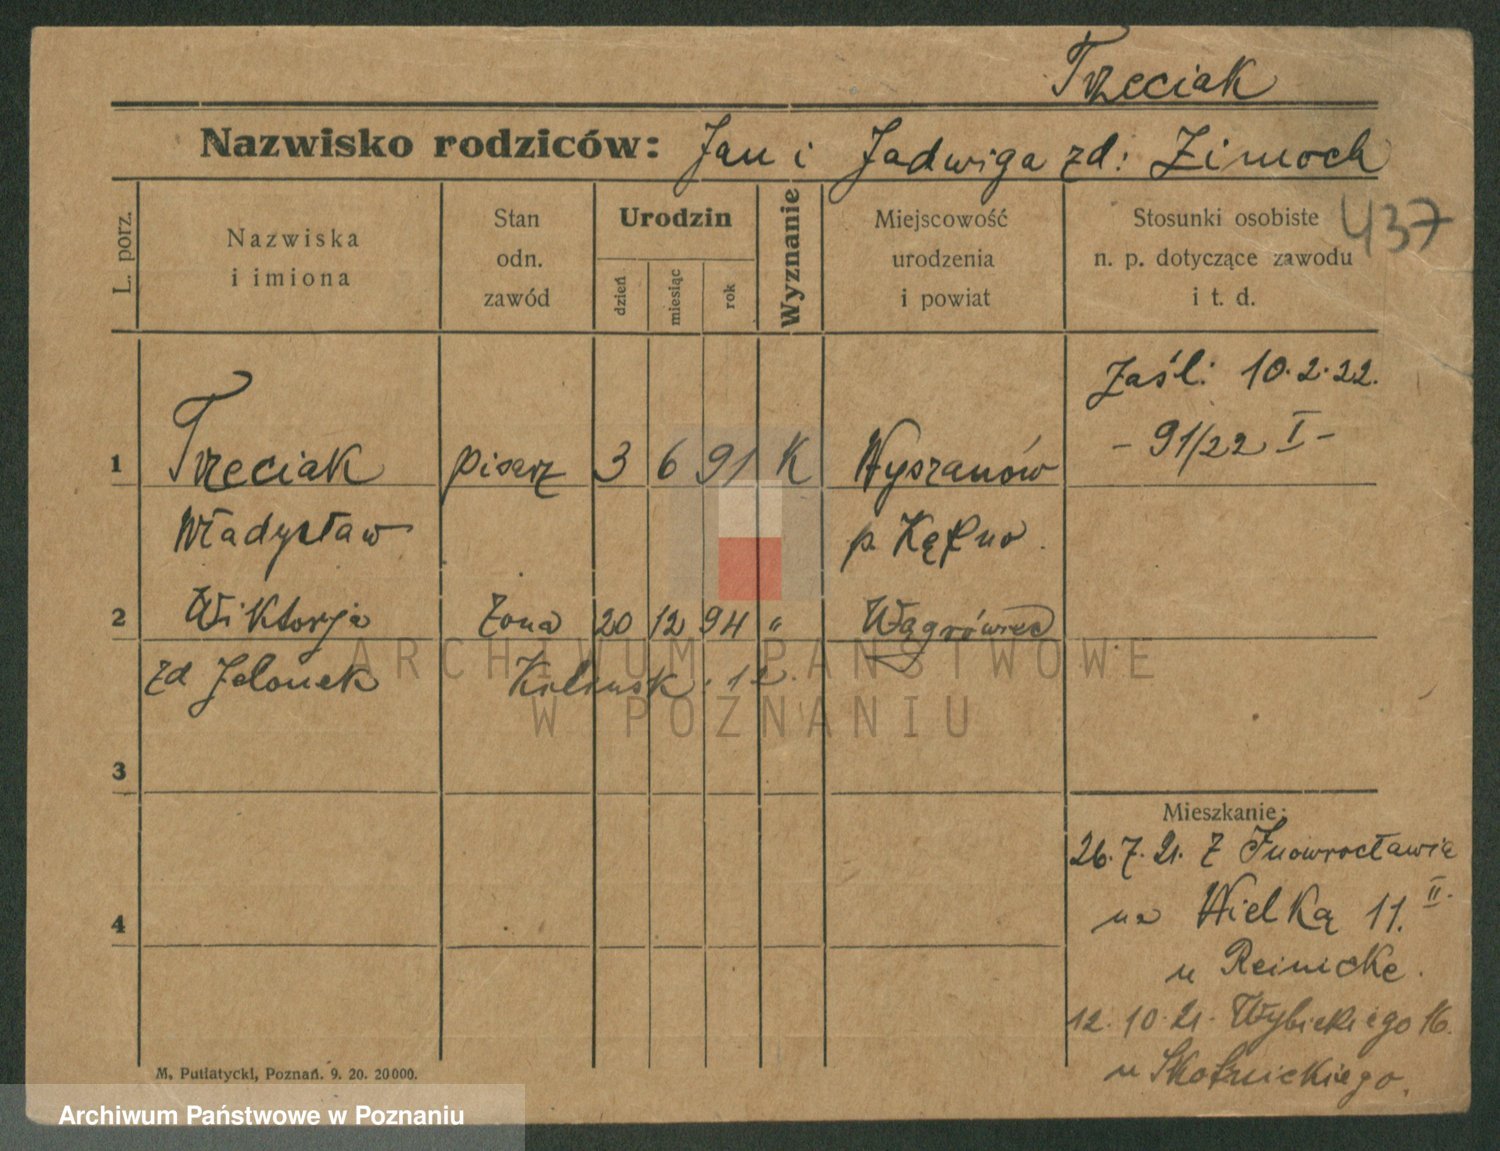 Trzeciak
Nazwisko rodziców: Jan i Jadwiga zd: Zimoch
437
L. porz.
Nazwiska
i imiona
Stan
odn.
zawód
Urodzin
dzień
miesiąc
rok
Wyznanie
Miejscowość
urodzenia
i powiat
Stosunki osobiste
n. p. dotyczące zawodu
i t. d.
Zaśl. 10.2.22.
- 91/22 I -
1 Trzeciak pisarz 3 6 91 K Wyszanów
Władysław p. Kępno.
2 Wiktorja żona 20 12 94 " Wągrówiec
zd Jelonek 12.
3
4
Mieszkanie:
26.7.21. Z Inowrocławia
na Wielką 11. II.
u Reinicke.
12.10.21. Wybickiego 16.
u Skotnickiego.
M. Putiatycki, Poznań. 9. 20. 20000.
ARCHIWUM PAŃSTWOWE
W POZNANIU
Archiwum Państwowe w Poznaniu